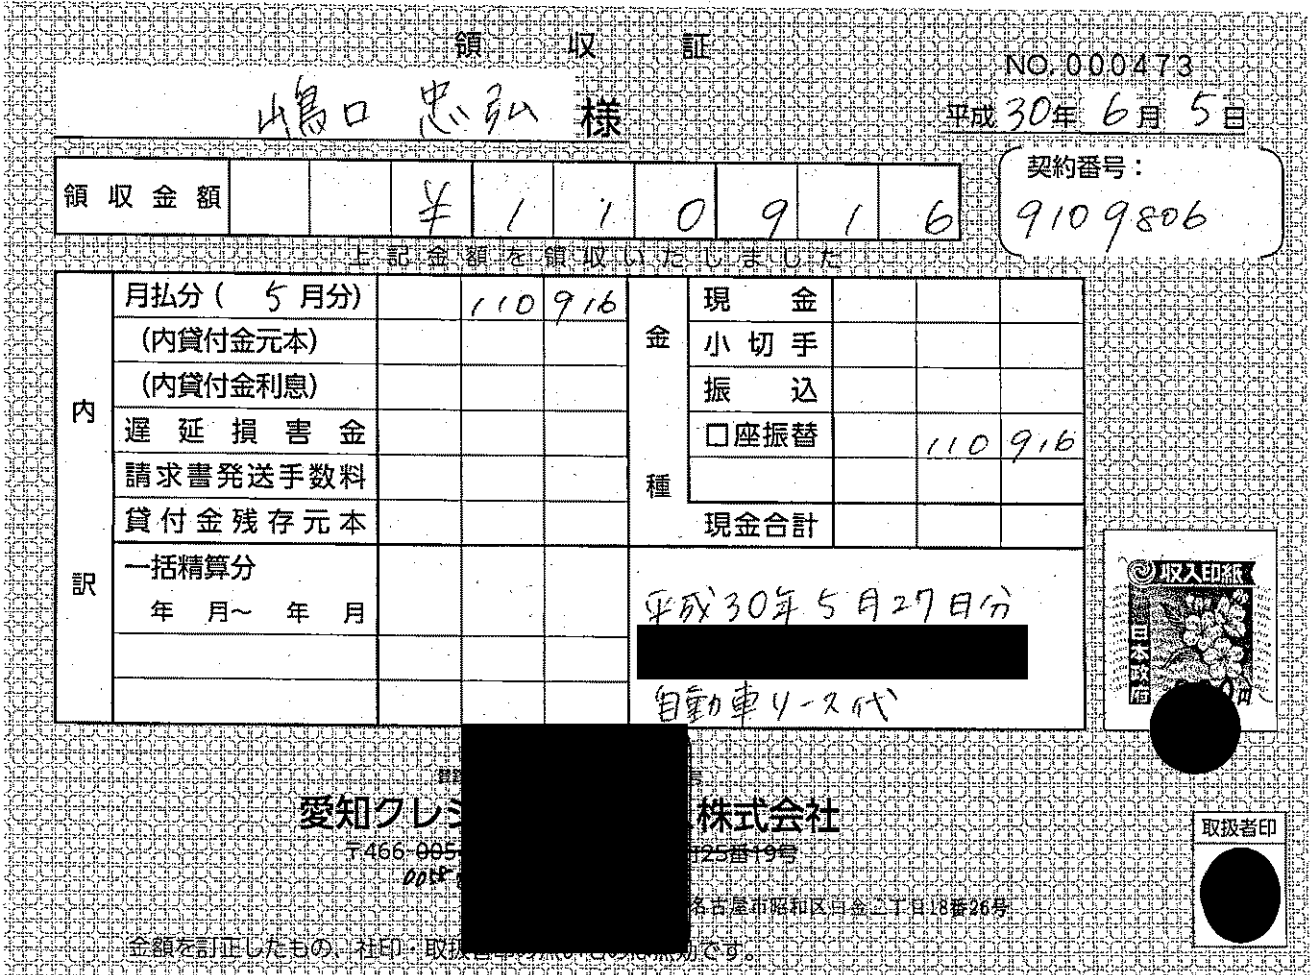 領収証
NO.000473
嶋口 忠弘 様
平成30年6月5日
領収金額 ¥110916
契約番号:
9109806
上記金額を領収いたしました
内訳
月払分( 5月分) 110916
(内貸付金元本)
(内貸付金利息)
遅延損害金
請求書発送手数料
貸付金残存元本
一括精算分
年 月~ 年 月
金種
現金
小切手
振込
口座振替 110916
現金合計
平成30年5月27日分
自動車リース代
収入印紙
日本政府
愛知クレジ
株式会社
〒466-005
25番19号
名古屋市昭和区白金二丁目18番26号
取扱者印
金額を訂正したもの、社印・取扱
無効です。